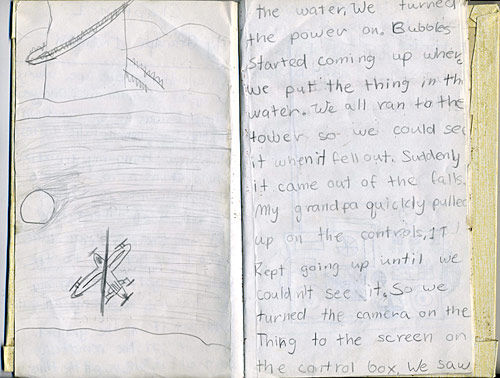 the water, We turned
the power on. Bubbles
started coming up where
we put the thing in the
water. We all ran to the
tower so we could see
it when it fell out. Suddenly
it came out of the falls.
My grandpa quickly pulled
up on the controls, IT
Kept going up until we
couldn't see it. So we
turned the camera on the
Thing to the screen on
the control box. We saw